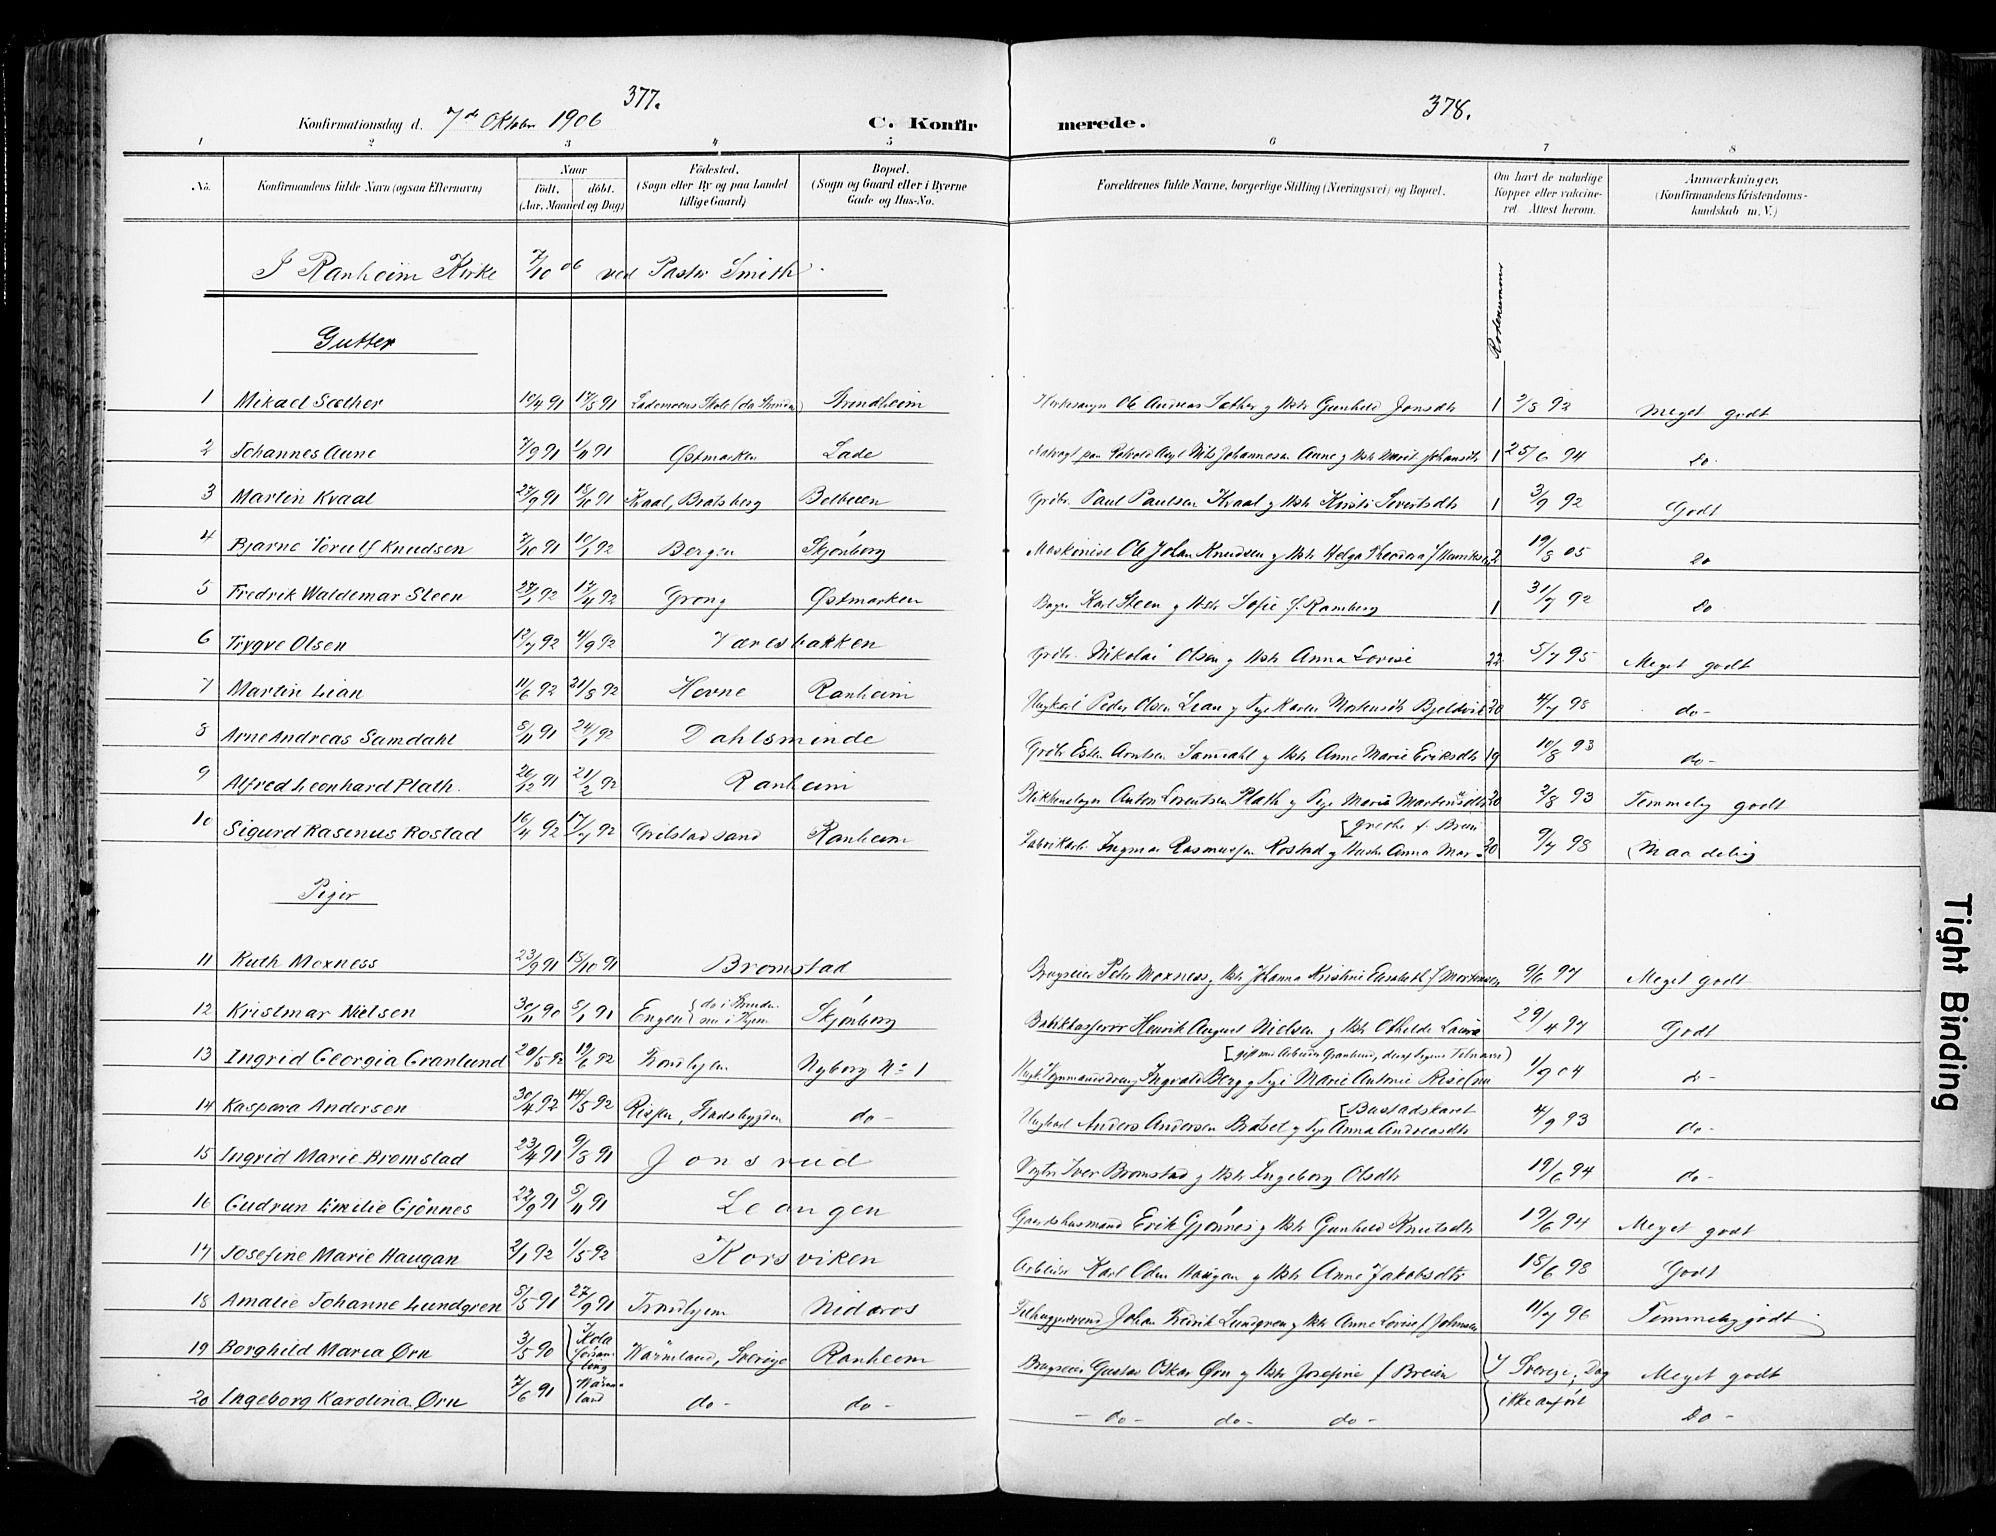 377.
378.
Konfirmationsdag d. 7de Oktober 1906
C. Konfirmerede.
1 2 3 4 5 6 7 8
No. Konfirmandens fulde Navn (ogsaa Efternavn) Naar født. døbt. (Aar, Maaned og Dag) Födested. (Sogn eller By og paa Landet tillige Gaard) Bopæl. (Sogn og Gaard eller i Byerne Gade og Hus-No. Forældrenes fulde Navne, borgerlige Stilling (Næringsvei) og Bopæl. Om havt de naturlige Kopper eller vaccineret. Attest herom. Anmærkninger. (Konfirmandens Kristendomskundskab m. V.)
I Ranheim Kirke 7/10 06 ved Pastor Smith.
Rodenummer
Gutter
1 Mikael Sæther 10/4 91 17/5 91 Lademoens Skole (da Strinda) Strindheim Ole Andreas Sæther g Hstr Gunhild Jonsdtr 1 2/8 92 Meget godt
2 Johannes Aune 7/9 91 1/11 91 Østmarken Lade Nils Johannesen Aune g Hstr Marit Johansdtr 1 25/6 94 do
3 Martin Kvaal 27/9 91 18/10 91 Kvaal, Bratsberg Belbuen Grdbr. Paul Paulsen Kvaal g Hstr Kirsti Sivertsdtr 1 3/9 92 Godt
4 Bjarne Torulf Knudsen 7/10 91 10/1 92 Bergen Skjönberg Maskinist Ole Johan Knudsen g Hstr Helga Theodora f Henriksen 2 19/8 05 do
5 Fredrik Waldemar Steen 27/1 92 17/4 92 Grong Østmarken Bager Karl Steen g Hstr Sofie f. Ramberg 1 31/7 92 do
6 Trygve Olsen 12/7 92 4/9 92 Væresbakken Grdbr. Nikolai Olsen g Hstr Anna Lovise 22 5/7 95 Meget godt
7 Martin Lian 11/6 92 21/8 92 Hevne Ranheim Ungkarl Peder Olsen Lian g Pige Karen Mortensdtr 20 4/7 98 do-
8 Arne Andreas Samdahl 8/11 91 24/1 92 Dahlsminde Grdbr Esten Arntsen Samdahl g Hstr Anne Marie Eriksdtr 19 10/8 93 do-
9 Alfred Leonhard Plath. 26/12 91 21/2 92 Ranheim Blikkenslager Anton Lorentsen Plath g Pige Maria Martensdtr 20 2/8 93 Temmelig godt
10 Sigurd Rasenus Rostad 16/4 92 17/7 92 Grilstadsand Ranheim Fabrikarb. Ingmar Rasmussen Rostad g Hustr Anna Mar- [grethe f. Breii 20 9/7 98 Maadelig
Piger
11 Ruth Moxness 23/9 91 18/10 91 Bromstad Brugseier Peter Moxness g Hstr Johanna Kristine Elisabeth f Mortensen 9/6 97 Meget godt
12 Kristmar Nielsen 30/11 90 5/1 91 Engen {da i Strinda nu i Thjem Skjönberg Henrik August Nielsen g Hstr Othilde Laura 29/4 97 Godt
13 Ingrid Georgia Granlund 20/5 92 19/6 92 Trondhjem Nyborg No 1 Ingvald Berg g Pige Marie Antonie Rise (nu [gift med Arbeider Granlund, deraf Pigens Tilnavn) 1/9 04 do-
14 Kaspara Andersen 30/4 92 14/5 92 Rissen, Stadsbygden do- Ungkarl Anders Andersen g Pige Anna Andreasdtr [Bustadskaret 4/9 93 do-
15 Ingrid Marie Bromstad 23/4 91 9/8 91 Jonsrud Iver Bromstad g Hstr Ingeborg Olsdtr 19/6 94 do-
16 Gudrun Emilie Gjönnes 22/9 91 8/11 91 Leangen Gaardshusmand Erik Gjönnes g Hstr Gunhild Knutsdtr 19/6 94 Meget godt
17 Josefine Marie Haugan 2/1 92 1/5 92 Korsviken Arbeider Karl Odin Haugan g Hstr Anne Jakobsdtr 18/6 98 Godt
18 Amalie Johanne Lundgren 5/5 91 27/9 91 Trondhjem Nidaros Johan Fredrik Lundgren g Hstr Anne Lovise f Johnsen 11/7 96 Temmelig godt
19 Borghild Maria Ørn 3/5 90 Wärmland, Sverige Ranheim Brugseier Gustav Oskar Ørn g Hstr Josefine f Breien I Sverige; Dag Meget godt
20 Ingeborg Karolina Ørn 7/6 91 Wärmland do- do- - do- do- do- ikke anfört Do-
Tight Binding